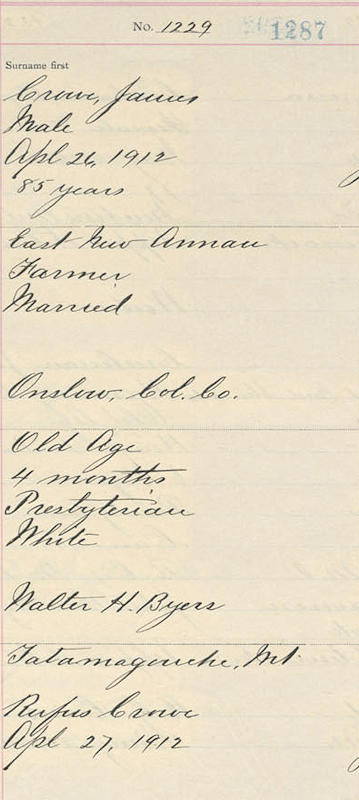 No. 1229 1287
Surname first
Crowe, James
Male
Apl 26, 1912
85 years
East New Annan
Farmer
Married
Onslow, Col. Co.
Old Age
4 months
Presbyterian
White
Walter H. Byers
Tatamagouche, Mt.
Rufus Crowe
Apl 27, 1912